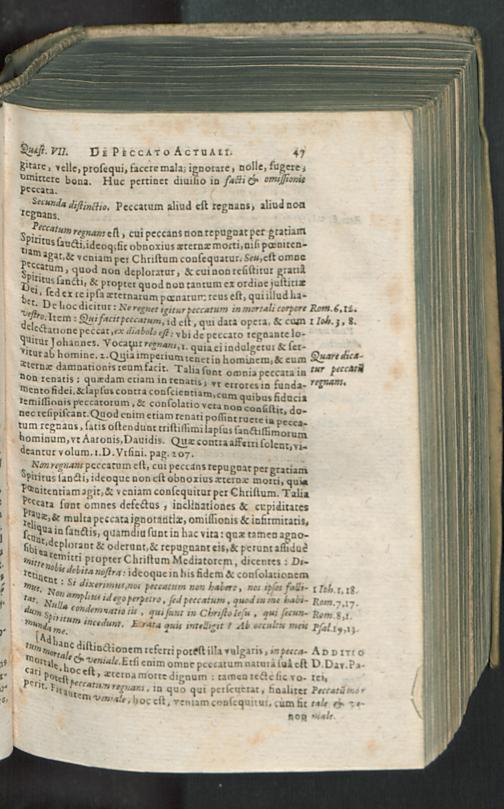 Quæst. VII. DE PECCATO ACTUALI. 47
gitare, velle, prosequi, facere mala; ignorare, nolle, fugere,
omittere bona. Huc pertinet divisio in facti & omissionis
peccata.
Secunda distinctio. Peccatum aliud est regnans, aliud non
regnans.
Peccatum regnans est, cui peccans non repugnat per gratiam
Spiritus sancti, ideoq; fit obnoxius æternæ morti, nisi pœniten-
tiam agat, & veniam per Christum consequatur. Seu, est omne
peccatum, quod non deploratur, & cui non resistitur gratiâ
Spiritus sancti, & propter quod non tantum ex ordine justitiæ
Dei, sed ex re ipsa æternarum pœnarum reus est, qui illud ha-
bet. De hoc dicitur: Ne regnet igitur peccatum in mortali corpore Rom. 6, 12.
vestro. Item: Qui facit peccatum, id est, qui data opera, & cum 1 Ioh. 3, 8.
delectatione peccat, ex diabolo est: ubi de peccato regnante lo-
quitur Johannes. Vocatur regnans, 1. quia ei indulgetur & ser-
vitur ab homine. 2. Quia imperium tenet in hominem, & eum Quare dica-
æternæ damnationis reum facit. Talia sunt omnia peccata in tur peccatũ
non renatis: quædam etiam in renatis; ut errores in funda- regnans.
mento fidei, & lapsus contra conscientiam, cum quibus fiducia
remissionis peccatorum, & consolatio vera non consistit, do-
nec resipiscant. Quod enim etiam renati possint ruere in pecca-
tum regnans, satis ostendunt tristissimi lapsus sanctissimorum
hominum, ut Aaronis, Davidis. Quæ contra afferri solent, vi-
deantur volum. 1. D. Ursini. pag. 207.
Non regnans peccatum est, cui peccans repugnat per gratiam
Spiritus sancti, ideoque non est obnoxius æternæ morti, quia
pœnitentiam agit, & veniam consequitur per Christum. Talia
peccata sunt omnes defectus, inclinationes & cupiditates
pravæ, & multa peccata ignorantiæ, omissionis & infirmitatis,
reliqua in sanctis, quamdiu sunt in hac vita: quæ tamen agno-
scunt, deplorant & oderunt, & repugnant eis, & petunt assiduè
sibi ea remitti propter Christum Mediatorem, dicentes: Di-
mitte nobis debita nostra: ideoque in his fidem & consolationem
retinent: Si dixerimus, nos peccatum non habere, nos ipsos falli- 1 Ioh. 1, 18.
mus. Non amplius id ego perpetro, sed peccatum, quod in me habi- Rom. 7, 17.
tat. Nulla condemnatio iis, qui sunt in Christo Iesu, qui secun- Rom. 8, 1.
dum Spiritum incedunt. Errata quis intelligit? Ab occultis meis Psal. 19, 13.
munda me.
[Ad hanc distinctionem referri potest illa vulgaris, in pecca- ADDITIO
tum mortale & veniale. Etsi enim omne peccatum naturâ suâ est D. Dav. Pa-
mortale, hoc est, æterna morte dignum: tamen rectè sic vo- rei,
cari potest peccatum regnans, in quo qui perseverat, finaliter Peccatũ mor
perit. Fit autem veniale, hoc est, veniam consequitur, cùm fit tale & ve-
non niale.